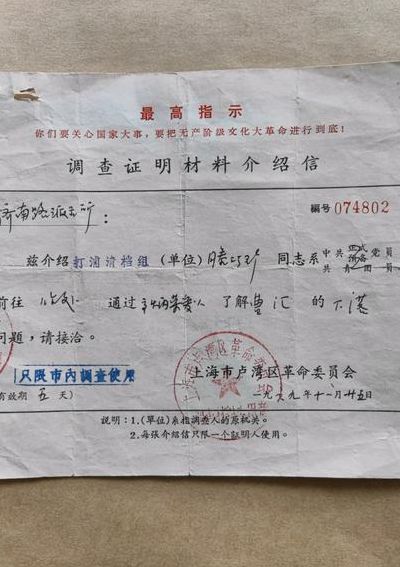 最高指示
你们要关心国家大事，要把无产阶级文化大革命进行到底！
调查证明材料介绍信
济南路派出所：
编号 074802
兹介绍 打浦清档组 (单位) 同志系 中共 正式 预备 党员 共青团员
前往 通过 了解 的
问题，请接洽。
只限市内调查使用
上海市卢湾区革命委员会
有效期 五 天)
一九六九年十一月廿五日
上海市卢湾区革命委员会
说明：1.(单位)系指调查人的原机关。
2.每张介绍信只限一个证明人使用。